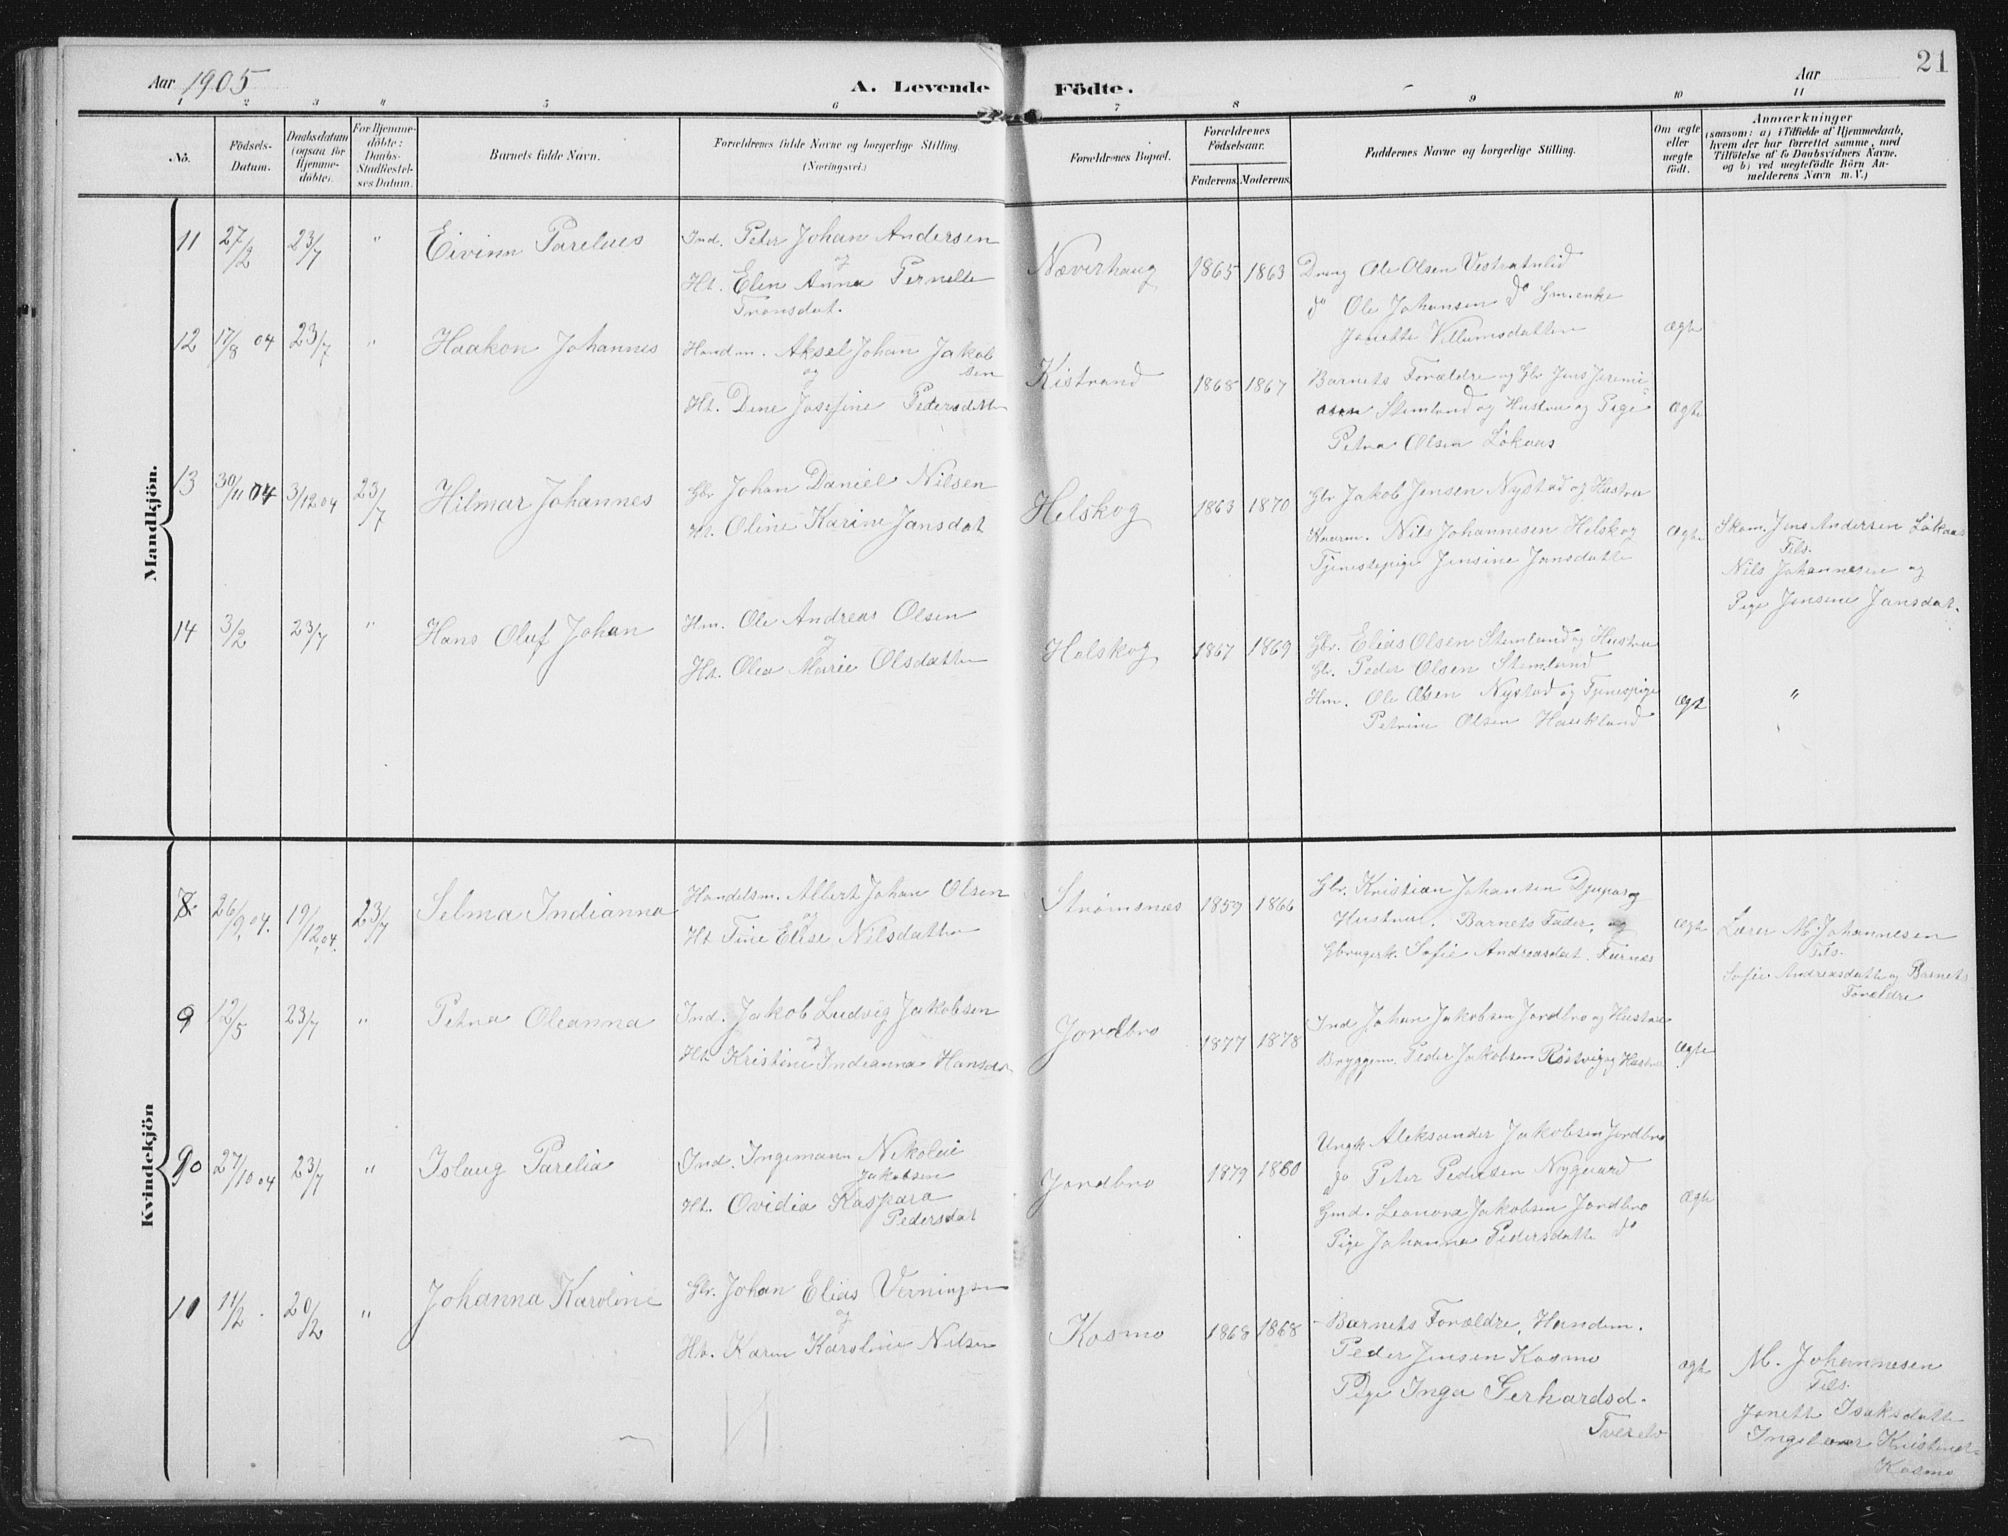 Aar 1905
A. Levende Födte.
Aar
21
1 2 3 4 5 6 7 8 9 10 11
No.
Födsels-
Datum.
Daabsdatum
(ogsaa for
Hjemme-
döbte).
For Hjemme-
döbte:
Daabs-
Stadfæstel-
ses Datum.
Barnets fulde Navn.
Forældrenes fulde Navne og borgerlige Stilling.
(Næringsvei.)
Forældrenes Bopæl.
Forældrenes
Födselsaar.
Faderens. Moderens.
Faddernes Navne og borgerlige Stilling.
Om ægte
eller
uægte
födt.
Anmærkninger
(saasom: a) i Tilfælde af Hjemmedaab,
hvem der har forrettet samme, med
Tilföielse af to Daabsvidners Navne.
og b) ved uægtefödte Börn An-
melderens Navn m. V.)
Mandkjön.
11 27/2 23/7 " Eivinn Parelues
Ind. Peter Johan Andersen
og
Ht. Elen Anna Pernelle
Tronsdat.
Næverhaug 1865 1863
Dreng Ole Olsen
do Ole Johansen do Gm.enke
Jonette Villumsdatter
ægte
12 17/8 04 23/7 " Haakon Johannes
Handm. Aksel Johan Jakob
og sen
Ht. Dene Josefine Pedersdtter
Kistrand 1868 1867
Barnets Forældre og Gbr Jens Jeremi-
Stemland og Hustru og Pige
Petra Olsen Løkaas
ægte
13 30/11 04 3/12 04 23/7 Hilmar Johannes
Gbr Johan Daniel Nilsen
Ht. Oline Karine Jansdat
Helskog 1863 1870
Gbr Jakob Jensen Nystad og Hustru
Kaarm. Nils Johannesen Helskog
Tjenestepige Jensine Jansdatte
ægte
Skom. Jens Andersen Løkaas
Tils.
Nils Johannesen og
Pige Jensine Jansdat.
14 3/2 23/7 " Hans Oluf Johan
Hm. Ole Andreas Olsen
og
Ht. Olea Marie Olsdatter
Helskog 1867 1869
Gbr. Elias Olsen Stemland og Hustru
Gb. Peder Olsen Stemland
Hm. Ole Olsen Nystad og Tjenespige
Petrine Olsen Haukland
ægt
"
Kvindekjön
8 26/9 04. 19/12 04. 23/7 Selma Indianna
Handelsm. Albert Johan Olsen
og
Ht Fine Elise Nilsdatter
Strømsnes 1859 1866
Gbr. Kristian Johansen Djupos og
Hustru. Barnets Fader, og
Gbrugerk. Sofie Andreasdat. Furnes
ægt
Lærer M. Johannesen
Tils.
Sofie Andreasdatte og Barnets
Forældre
9 12/5 23/7 " Petra Oleanna
Ind. Jakob Ludvig Jakobsen
og
Ht. Kristine Indianna Hansdr
Jordbro 1877 1878
Ind Johan Jakobsen Jordbro og Hustru
Bryggem. Peder Jakobsen Røstvig og Hustru
ægte
10 27/10 04 23/7 " Islaug Parelia
Ind. Ingemann Nikolai
Jakobsen
Ht. Ovidia Kaspara
Pedersdat
Jordbro 1879 1880
Ungk. Aleksander Jakobsen Jordbro
do Peter Pedersen Nygaard
Gmd. Leonora Jakobsen Jordbro
Pige Johanna Pedersdatte do
ægte
10 11/2. 20/2 " Johanna Karoline
Gbr. Johan Elias Verningsen
og
Ht. Karen Karoline Nilsen
Kosmo 1868 1868
Barnets Forældre, Handem.
Peder Jensen Kosmo
Pige Inga Gerhardsd.
Tverelv
ægt
M. Johannesen
Tils.
Jonette Isaksdatte
Kosmo